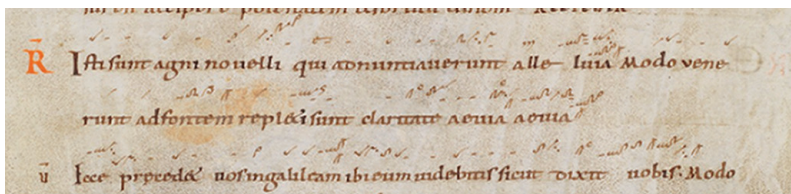 R Isti sunt agni novelli qui adnuntiaverunt alle luia Modo vene
runt ad fontem repl&i sunt claritate aevia aevia
V Ecce preced& vos in galileam ibi eum videbitis sicut dixit vobis. Modo